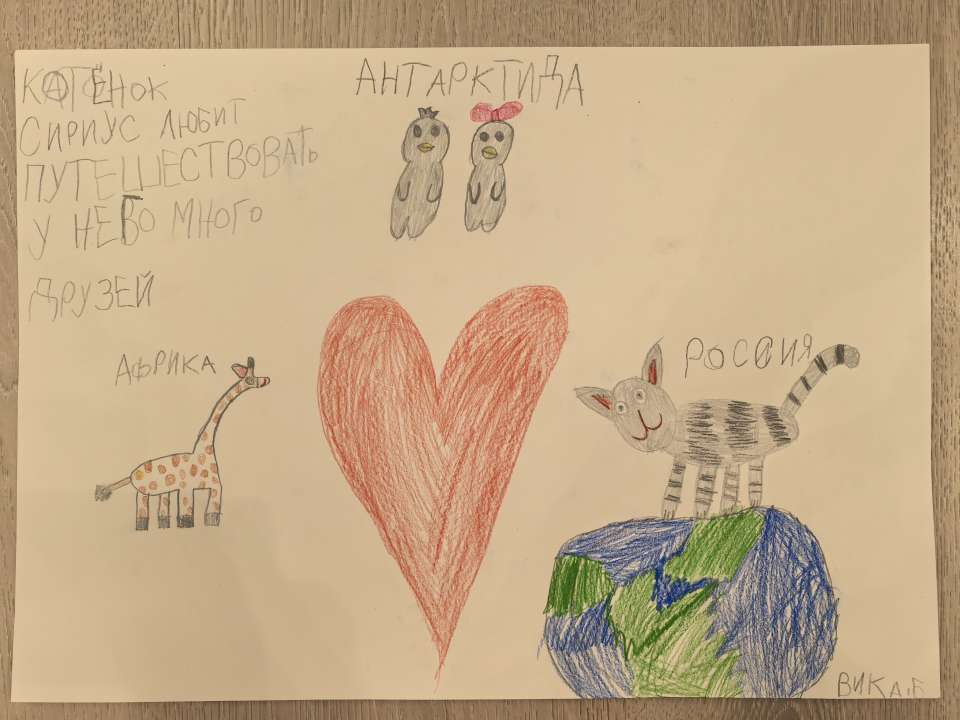 КАТЁНОК
СИРИУС ЛЮБИТ
ПУТЕШЕСТВОВАТЬ
У НЕГО МНОГО
ДРУЗЕЙ
АНТАРКТИДА
АФРИКА
РОССИЯ
ВИКА